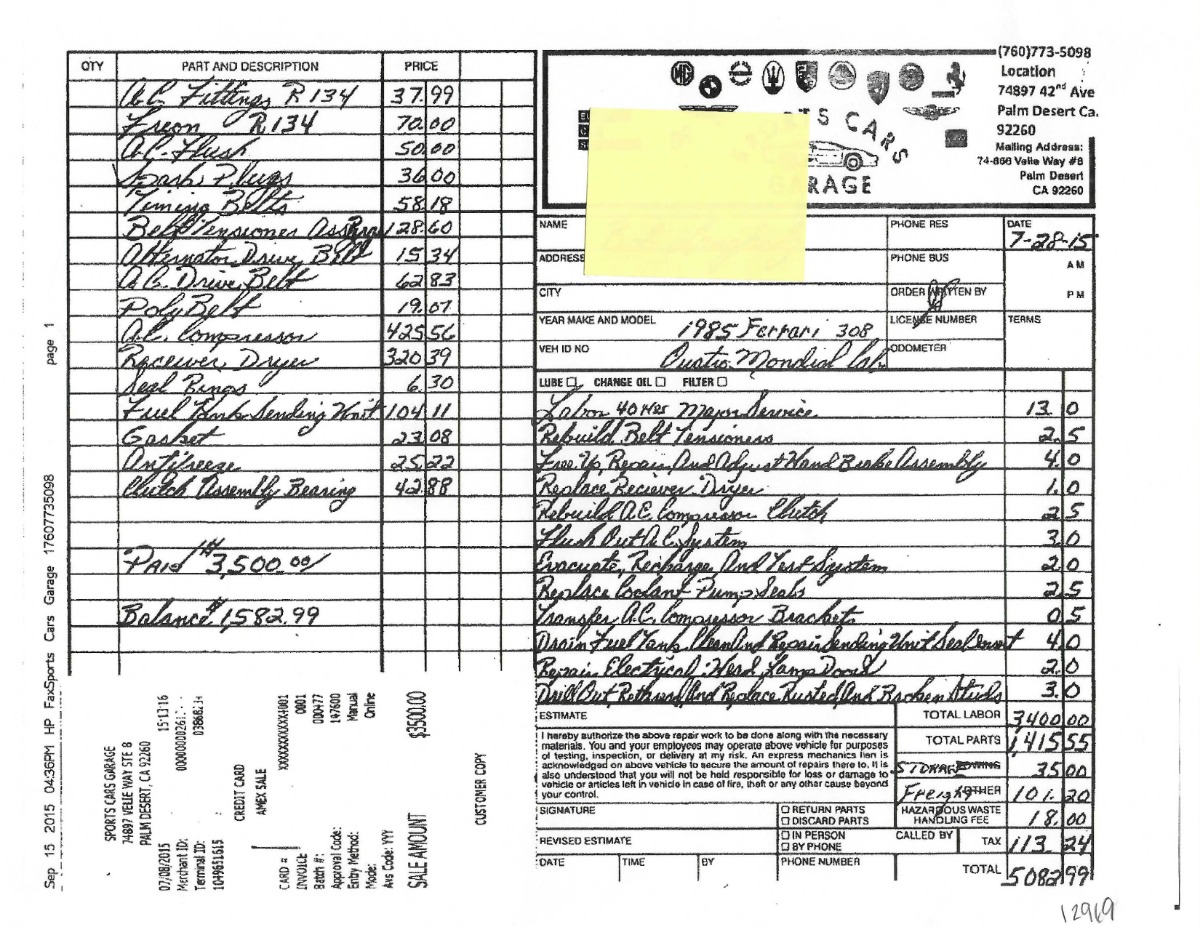 QTY PART AND DESCRIPTION PRICE
A.C. Fittings R134 37.99
Freon R134 70.00
A.C. Flush 50.00
Spark Plugs 36.00
Timing Belts 58.18
Belt Tensioner 128.60
Alternator Drive Belt 15 34
A.C. Drive Belt 62 83
Poly Belt 19.07
A.C. Compressor 425.56
Receiver, Dryer 320 39
Seal Rings 6.30
Fuel Tank Sending Unit 104 11
Gasket 23.08
Antifreeze 25.22
Clutch Assembly Bearing 42.88
Paid $3,500.00
Balance $1,582.99
(760)773-5098
Location
74897 42nd Ave
Palm Desert Ca.
92260
Mailing Address:
74-866 Velie Way #8
Palm Desert
CA 92260
TS CARS
GARAGE
NAME PHONE RES DATE
7-28-15
ADDRESS PHONE BUS AM
CITY ORDER WRITTEN BY PM
YEAR MAKE AND MODEL 1985 Ferrari 308 LICENSE NUMBER TERMS
VEH ID NO Cuatro Mondial Cab. ODOMETER
LUBE CHANGE OIL FILTER
Labor 40 Hrs Major Service 13.0
Rebuild Belt Tensioners 2.5
Free Up, Repair, And Adjust Hand Brake Assembly 4.0
Replace Reciever Dryer 1.0
Rebuild A.C. Compressor Clutch 2 5
Flush Out A.C. System 3.0
Evacuate, Recharge And Test System 2.0
Replace Coolant Pump Seals 2.5
Transfer A.C. Compressor Bracket 0.5
Drain Fuel Tank, Clean And Repair Sending Unit Seal 4.0
Repair Electrical: Head Lamp 2.0
Drill Out, Rethread, And Replace Rusted And Broken Studs 3.0
ESTIMATE TOTAL LABOR 3400.00
I hereby authorize the above repair work to be done along with the necessary
materials. You and your employees may operate above vehicle for purposes
of testing, inspection, or delivery at my risk. An express mechanics lien is
acknowledged on above vehicle to secure the amount of repairs there to. It is
also understood that you will not be held responsible for loss or damage to
vehicle or articles left in vehicle in case of fire, theft or any other cause beyond
your control.
TOTAL PARTS 1,415.55
STORAGE TOWING 35.00
Freight OTHER 101.20
SIGNATURE RETURN PARTS
DISCARD PARTS
HAZARDOUS WASTE
HANDLING FEE 18.00
REVISED ESTIMATE IN PERSON
BY PHONE CALLED BY TAX 113.24
DATE TIME BY PHONE NUMBER TOTAL 5082.99
12969
Sep 15 2015 04:36PM HP FaxSports Cars Garage 17607735098 page 1
SPORTS CARS GARAGE
74897 VELIE WAY STE 8
PALM DESERT, CA 92260
07/08/2015 15:13:16
Merchant ID:
Terminal ID:
1049651615
CREDIT CARD
AMEX SALE
CARD # XXXXXXXXXXX4001
INVOICE 0001
Batch #: 000477
Approval Code: 197600
Entry Method: Manual
Mode: Online
Avs Code: YYY
SALE AMOUNT $3500.00
CUSTOMER COPY